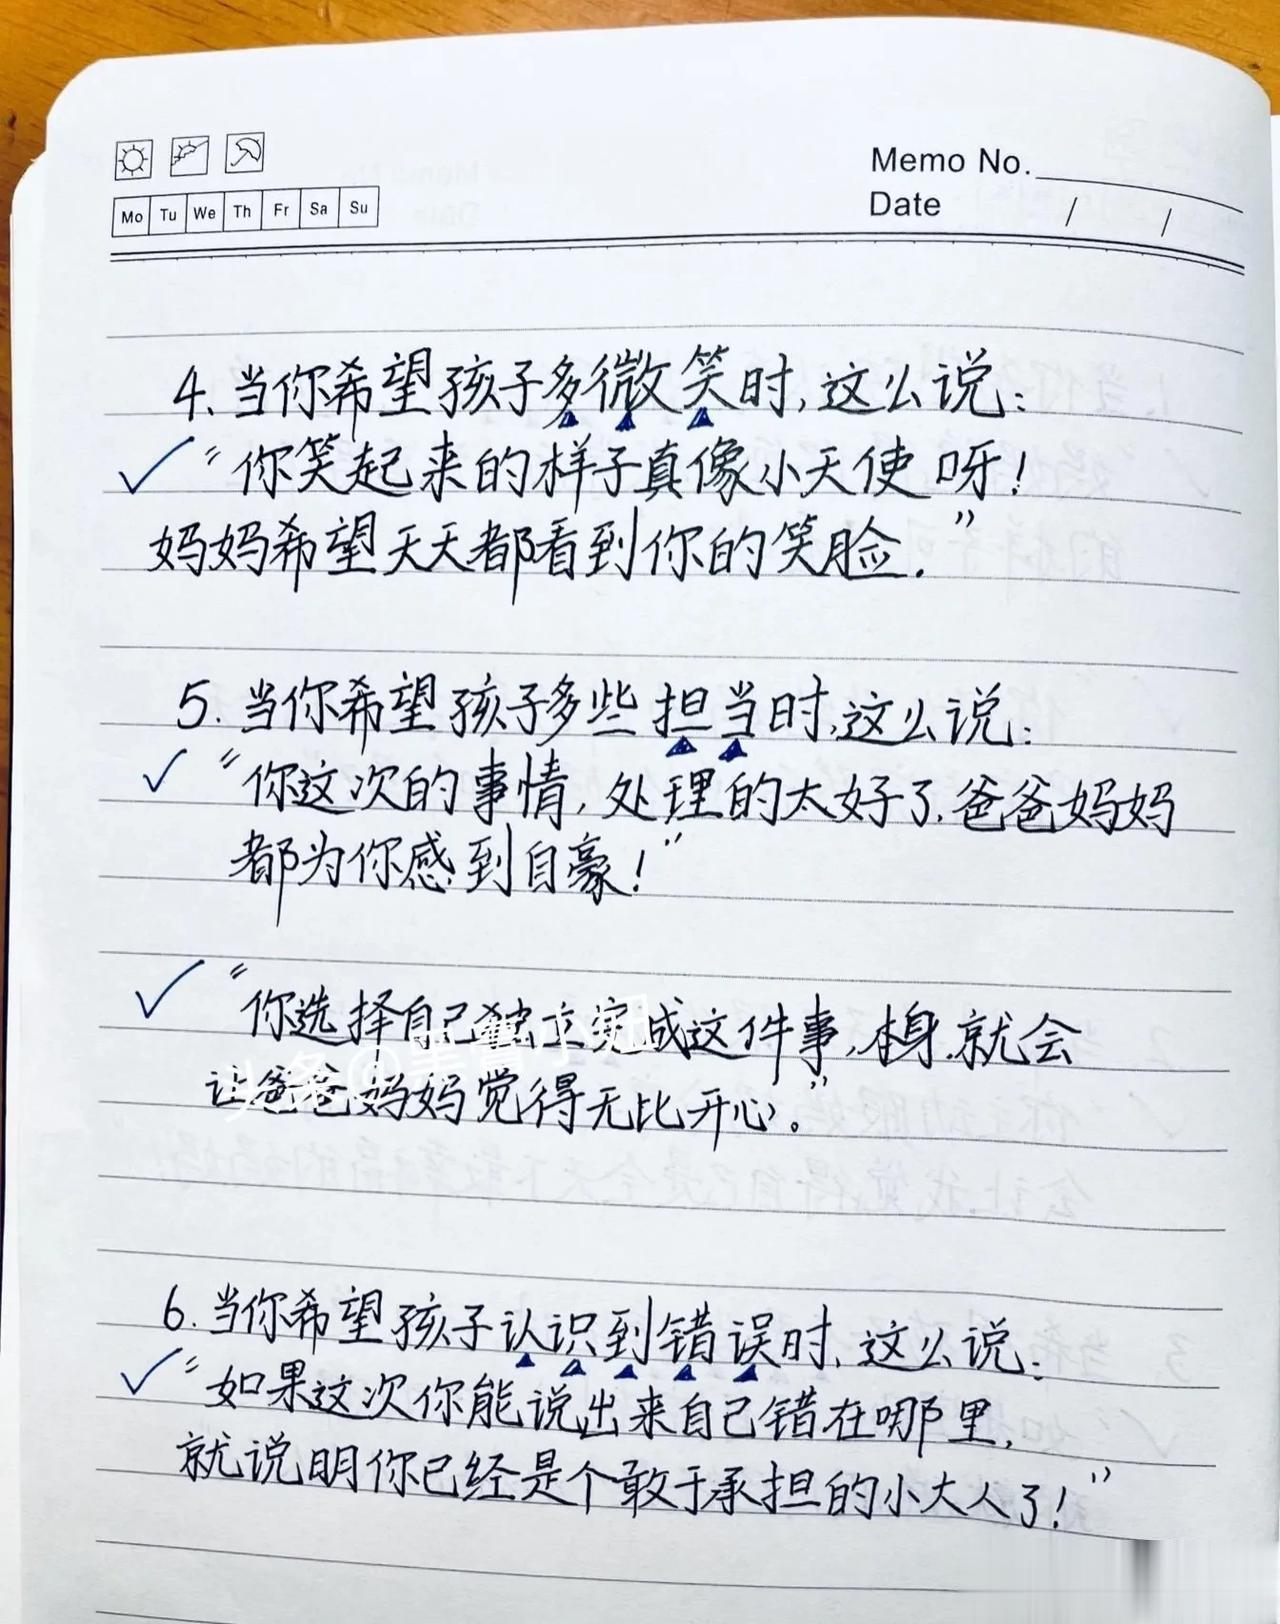 Memo No.
Mo Tu We Th Fr Sa Su
Date / /
4.当你希望孩子多微笑时,这么说:
“你笑起来的样子真像小天使呀!
妈妈希望天天都看到你的笑脸.”
5.当你希望孩子多些担当时,这么说:
“你这次的事情,处理的太好了,爸爸妈妈
都为你感到自豪!”
“你选择自己独立完成这件事,本身,就会
让爸爸妈妈觉得无比开心。”
头条@黑鹭小妞
6.当你希望孩子认识到错误时,这么说:
“如果这次你能说出来自己错在哪里,
就说明你已经是个敢于承担的小大人了!”